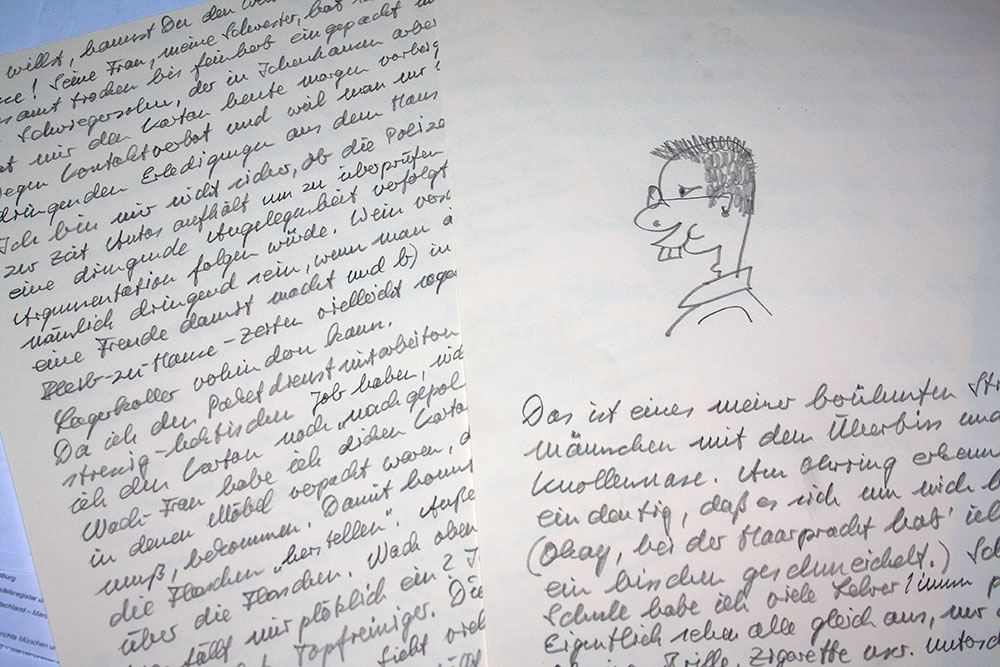 willst, kannst Du den
! Seine Frau, meine Schwester, hat
samt trocken bis feinherb eingepackt
Schwiegersohn, der in Ichenhausen arbe
mir den Karton heute morgen vorbeig
wegen Kontaktverbot und weil man nur
dringenden Erledigungen aus dem Haus
Ich bin mir nicht sicher, ob die Polize
zur Zeit Autos aufhält um zu überprüfen
eine dringende Angelegenheit verfolgt
Argumentation folgen würde. Wein vers
nämlich dringend sein, wenn man a
eine Freude damit macht und b) in
Bleib-zu-Hause-Zeiten vielleicht soga
Lagerkoller verhindern kann.
Da ich den Paketdienstmitarbeitern
stressig-hektischen Job haben, nich
ich den Karton noch „nachgepol
Wach-Frau habe ich dicken Karto
in denen Möbel verpackt waren, d
muß, bekommen. Damit konnt
die Flaschen „herstellen“. Auße
über die Flaschen. Wach oben
fällt mir plötzlich ein 2
Topfreiniger. Die
sieht viel
Das ist eines meiner berühmten Str
männchen mit dem Überbiss und
Knollennase. Am Ohrring erkenn
eindeutig, daß es sich um mich
(Okay, bei der Haarpracht hat' ich
ein bischen geschmeichelt.) Sch
Schule habe ich viele Lehrer
Eigentlich sehen alle gleich aus, nur
Brille, Zigarette usw. untersch
burg
delsregister
tschland – Mar
richts München